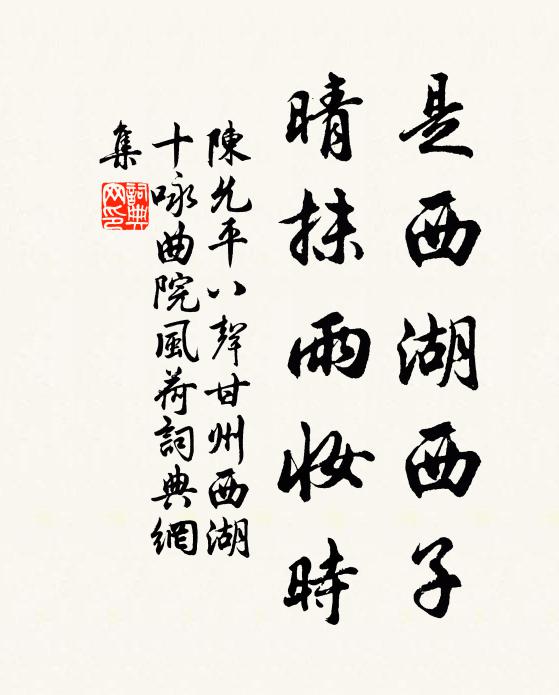 是西湖西子
晴抹雨妝時
陳允平八聲甘州西湖
十咏曲院風荷詞典網
集
詞典網印